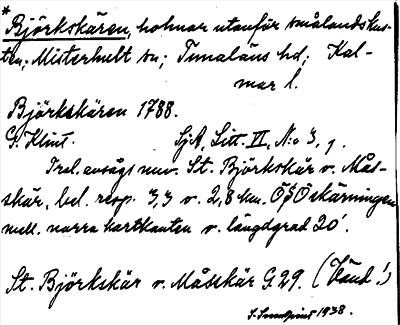 * Björkskären, holmar utanför smålandskus-
ten; Misterhult sn; Tunaläns hd; Kal-
mar l.
Björkskären 1788.
G. Klint. SjA, Litt. VI, N:o 3, 1.
Trol. avsågs nuv. St. Björkskär o. Mås-
skär, bel. resp. 3,3 o. 2,8 km. OSO skärningen
mell. norra kartkanten o. längdgrad 20'.
St. Björkskär o. Måsskär G 29. (Vänd!)
1938.